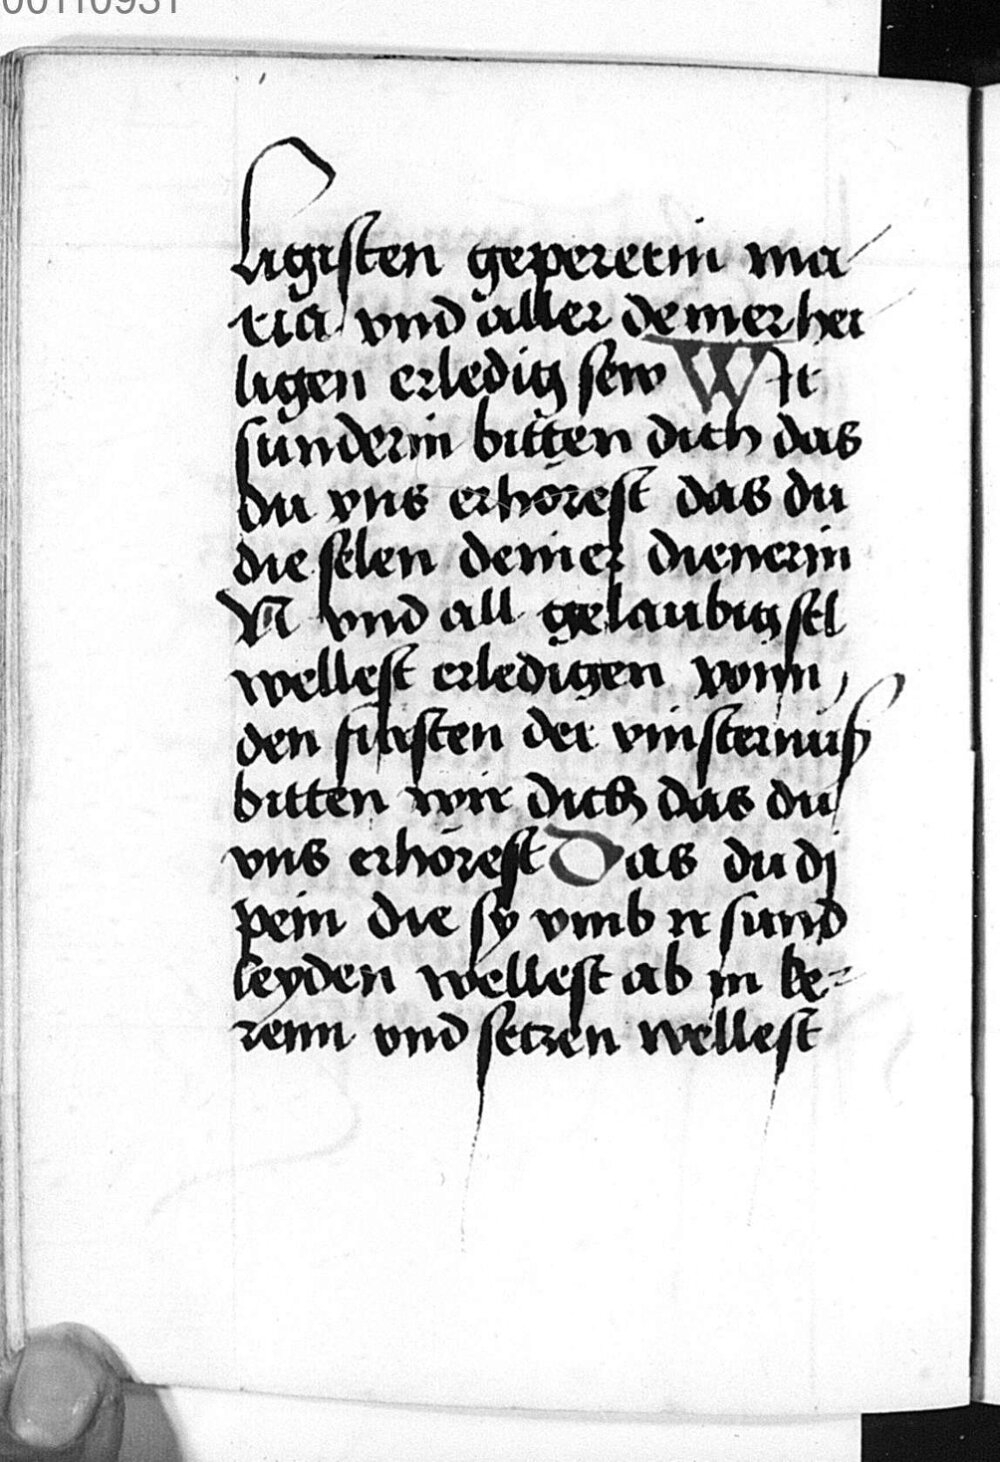 00110931
ligisten gepererin ma
ria vnd aller deiner hei
ligen erledig sew Wir
sunderin bitten dich das
du vns erhörest das du
die selen deiner dienerin
N vnd all gelaubig sel
wellest erledigen vonn
den fursten der vinsternuß
bitten wir dich das du
vns erhörest Das du di
pein die sy vmb ir sund
leyden wellest ab in ke-
renn vnd setzen wellest